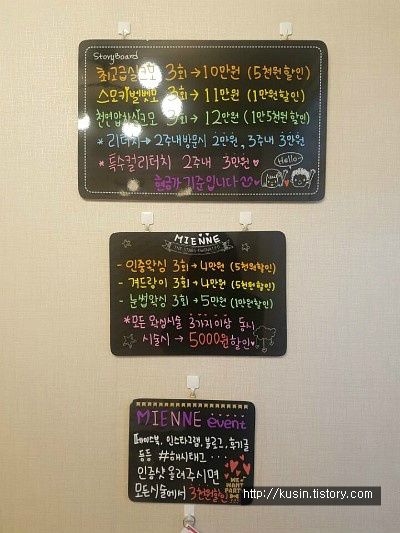 StoryBoard
최고급실크모 3회→10만원 (5천원할인)
스모키벨벳모 3회→11만원 (1만원할인)
천연밍크모 3회→12만원 (1만5천원할인)
* 리터치→2주내방문시 2만원, 3주내 3만원
* 특수컬리터치 2주내 3만원♥
Hello~
현금가 기준입니다
MIENNE
- 인중왁싱 3회→4만원 (5천원할인)
- 겨드랑이 3회→4만원 (5천원할인)
- 눈썹왁싱 3회→5만원 (1만원할인)
*모든 왁싱시술 3가지이상 동시
시술시 → 5000원할인♥
MIENNE event
페이스북, 인스타그램, 블로그, 후기글
등등 #해시태그 ...
인증샷 올려주시면
모든시술에서 3천원할인
WE WANT PARTY
http://kusin.tistory.com